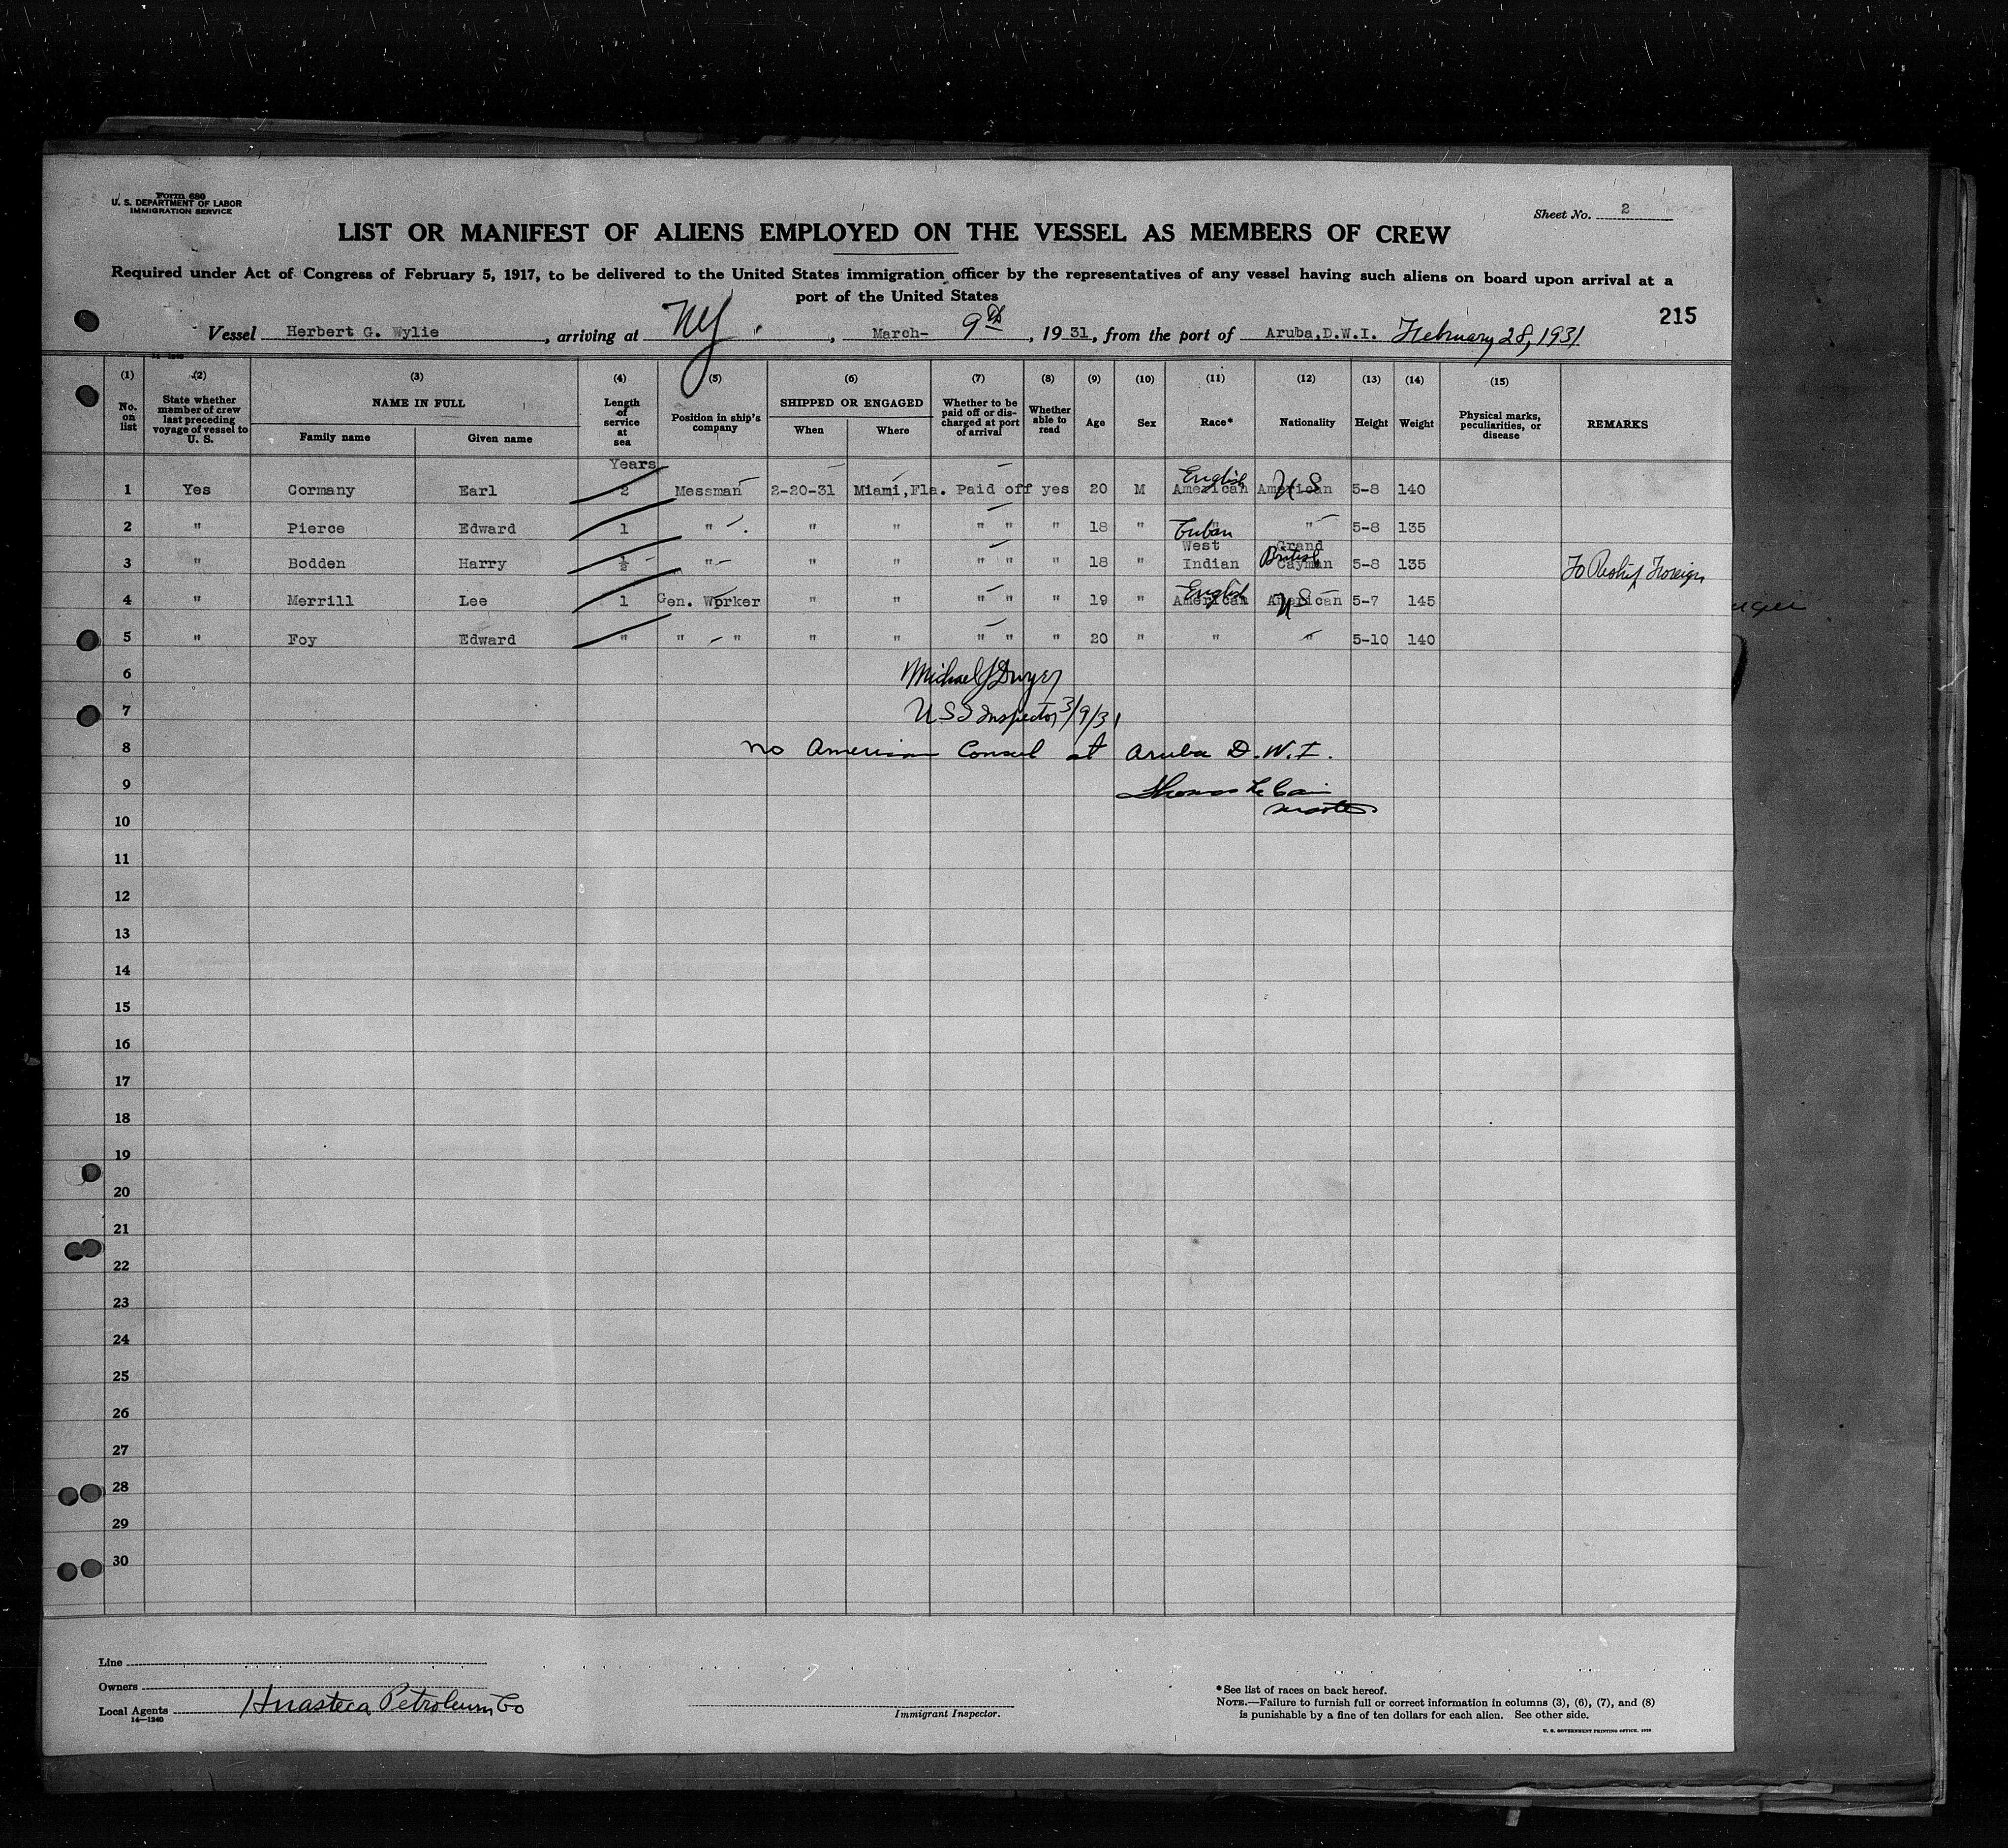 Form 680
U. S. DEPARTMENT OF LABOR
IMMIGRATION SERVICE
Sheet No. 2
LIST OR MANIFEST OF ALIENS EMPLOYED ON THE VESSEL AS MEMBERS OF CREW
Required under Act of Congress of February 5, 1917, to be delivered to the United States immigration officer by the representatives of any vessel having such aliens on board upon arrival at a
port of the United States
215
Vessel Herbert G. Wylie, arriving at NY., March- 9th, 1931, from the port of Aruba,D.W.I. February 28, 1931
14-1240
(1) (2) (3) (4) (5) (6) (7) (8) (9) (10) (11) (12) (13) (14) (15)
No. on list
State whether member of crew last preceding voyage of vessel to U. S.
NAME IN FULL
Family name Given name
Length of service at sea
Position in ship's company
SHIPPED OR ENGAGED
When Where
Whether to be paid off or discharged at port of arrival
Whether able to read
Age Sex Race* Nationality Height Weight
Physical marks, peculiarities, or disease
REMARKS
Years
1 Yes Cormany Earl 2 Messman 2-20-31 Miami,Fla. Paid off yes 20 M American English American US 5-8 140
2 " Pierce Edward 1 " " " " " " 18 " " Cuban " 5-8 135
3 " Bodden Harry ½ " " " " " " 18 " West Indian Grand Cayman British 5-8 135 To Reship Foreign
4 " Merrill Lee 1 Gen. Worker " " " " " 19 " American English American US 5-7 145
5 " Foy Edward " " " " " " " " 20 " " " 5-10 140
6
Michael J Dwyer
7
U S I Inspector 3/9/31
8
No American Consul at Aruba D.W.I.
9
Thomas
Master
10
11
12
13
14
15
16
17
18
19
20
21
22
23
24
25
26
27
28
29
30
Line
Owners
Local Agents Huasteca Petroleum Co
14-1240
Immigrant Inspector.
*See list of races on back hereof.
NOTE.—Failure to furnish full or correct information in columns (3), (6), (7), and (8)
is punishable by a fine of ten dollars for each alien. See other side.
U. S. GOVERNMENT PRINTING OFFICE.